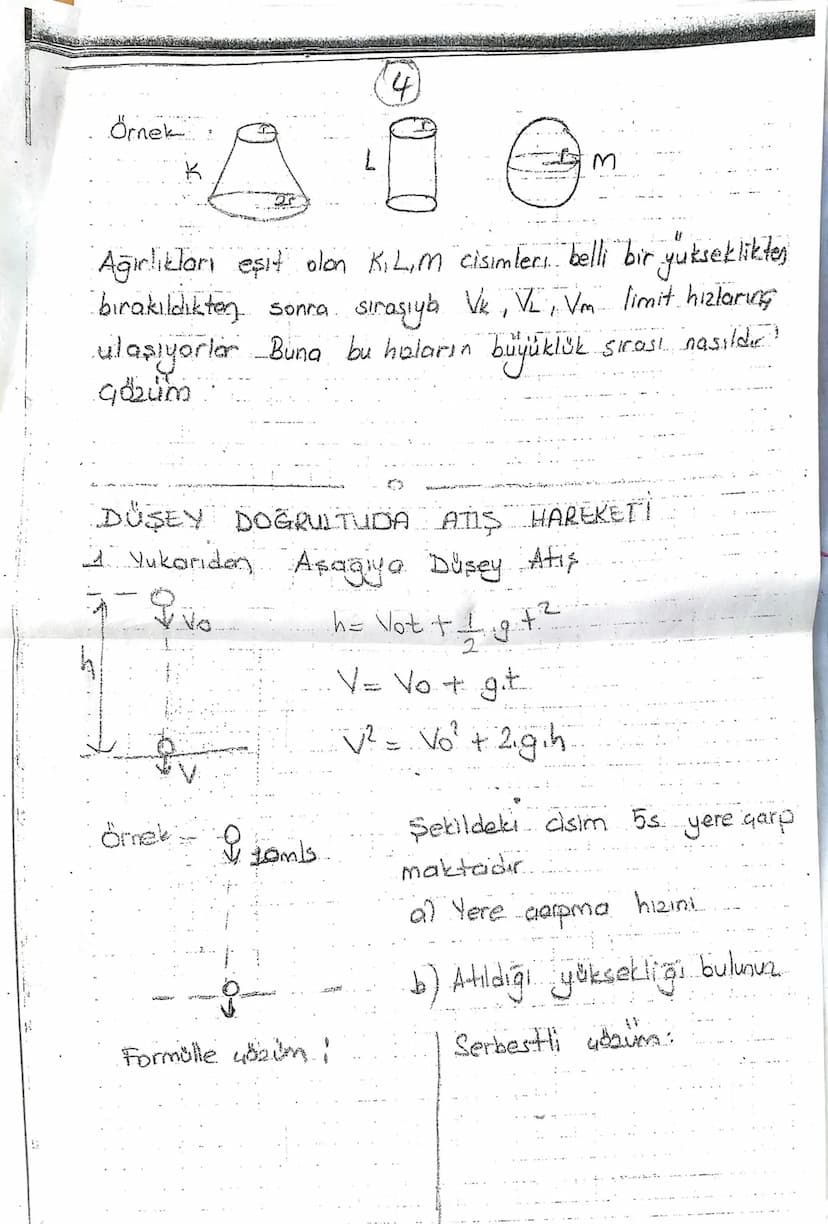 4
Örnek
K r 2r L r r M
Ağırlıkları eşit olan K,L,M cisimleri belli bir yükseklikten
bırakıldıkten sonra sırasıyla Vk, VL, Vm limit hızlarına
ulaşıyorlar Buna bu hızların büyüklük sırası nasıldır?
Çözüm
DÜŞEY DOĞRULTUDA ATIŞ HAREKETİ
1 Yukarıden Aşağıya Düşey Atış
Vo h= Vot + 1/2 .g t²
h
V= Vo + g.t
V² = Vo² + 2.g.h
V
Örnek - 10m/s Şekildeki cisim 5s yere çarp
maktadır
a) Yere çarpma hızını
b) Atıldığı yüksekliği bulunuz
Formülle çözüm : Serbestli çözüm: